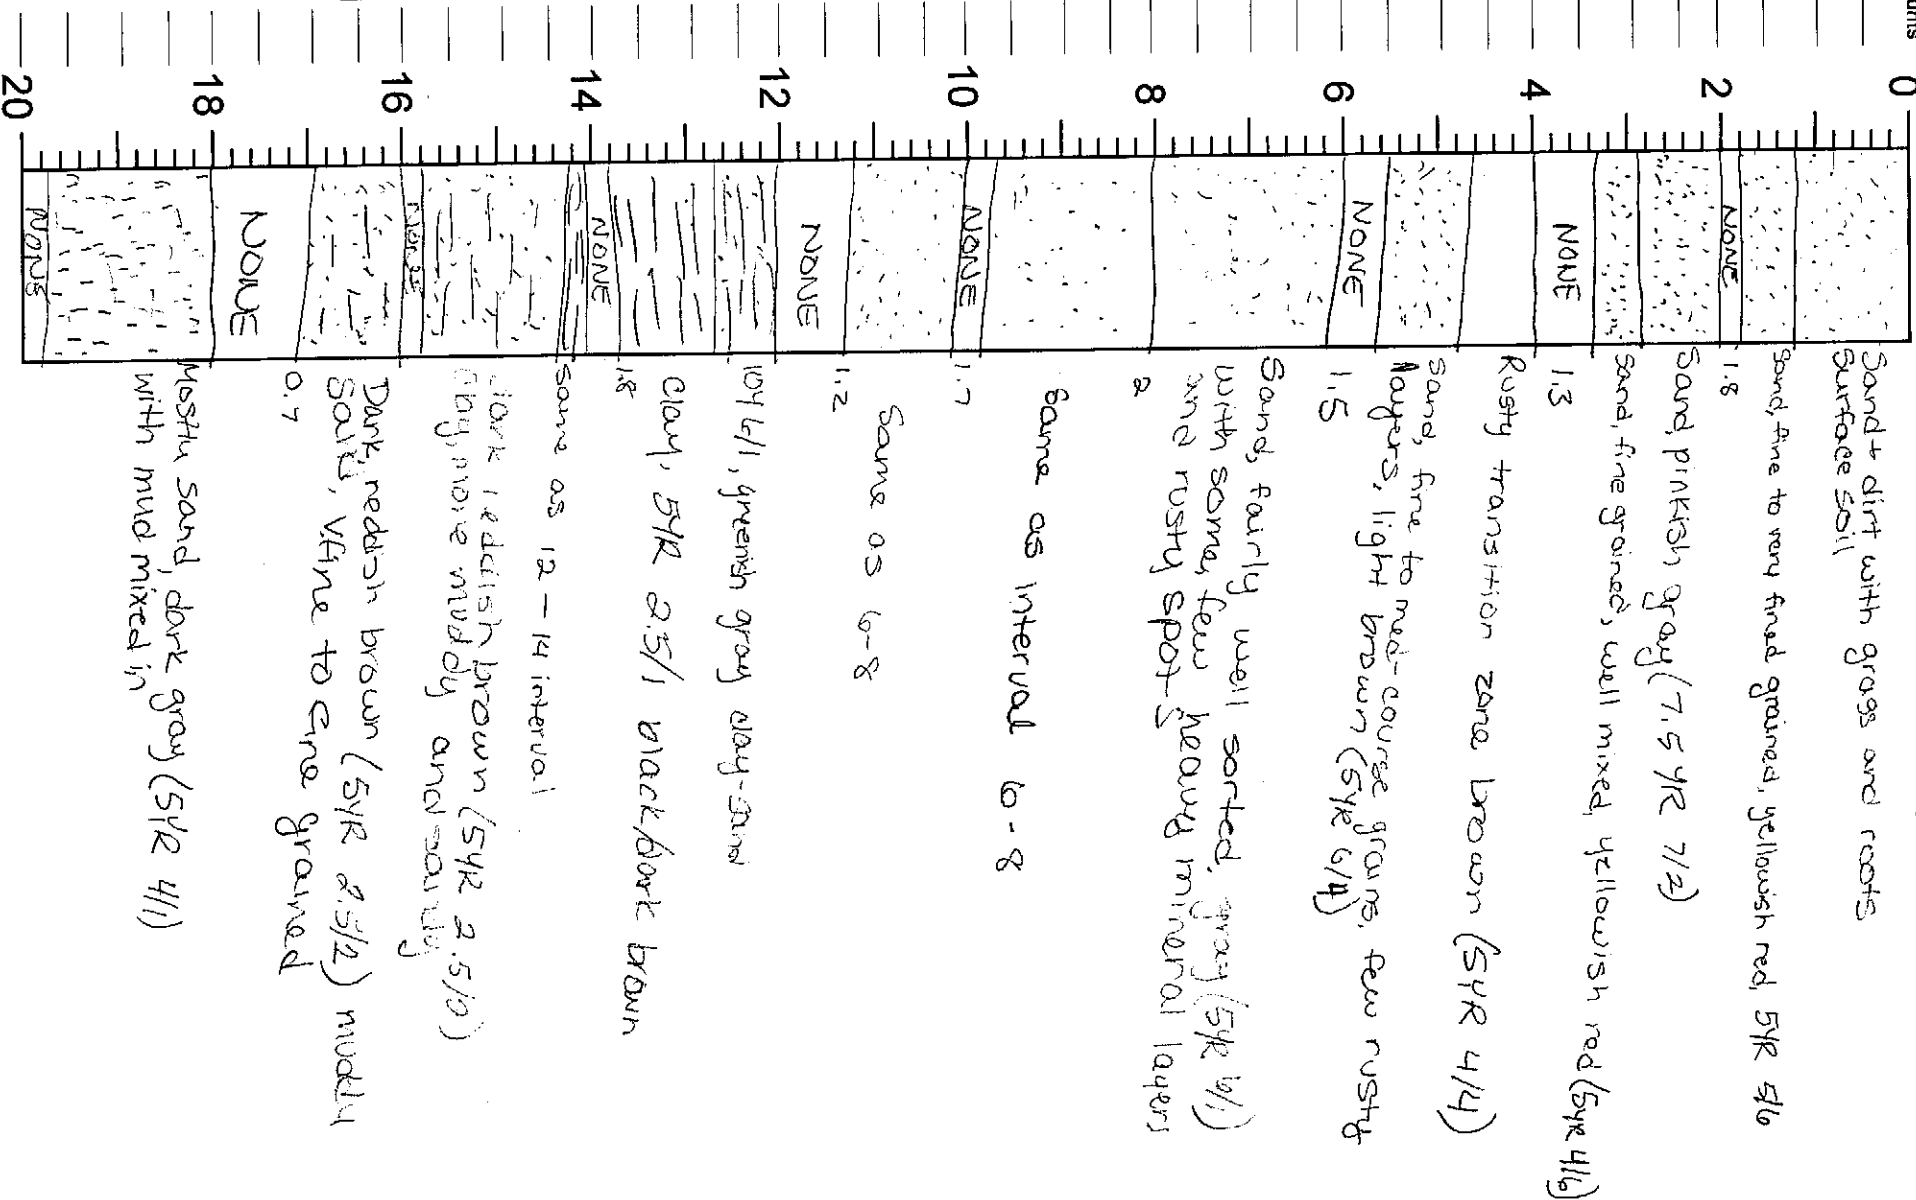 0
2
4
6
8
10
12
14
16
18
20
NONE
NONE
NONE
NONE
NONE
NONE
None
NONE
NONE
Sand + dirt with grass and roots
Surface soil
Sand, fine to very fined grained, yellowish red, 5YR 5/6
1.8
Sand, pinkish gray (7.5 YR 7/2)
Sand, fine grained, well mixed, yellowish red (5YR 4/6)
1.3
Rusty transition zone brown (5YR 4/4)
Sand, fine to med-course grains, few rusty
layers, light brown (5YR 6/4)
1.5
Sand, fairly well sorted, gray (5YR 6/1)
with some, few heavy mineral layers
and rusty spots
2
Same as interval 6-8
1.7
Same as 6-8
1.2
10Y 6/1, greenish gray clay-sand
Clay, 5YR 2.5/1 black/dark brown
1.8
Same as 12-14 interval
Dark reddish brown (5YR 2.5/
Clay, more muddy and sandy
Dark, reddish brown (5YR 2.5/2) muddy
Sand, V.fine to fine grained
0.7
Mostly sand, dark gray (5YR 4/1)
with mud mixed in